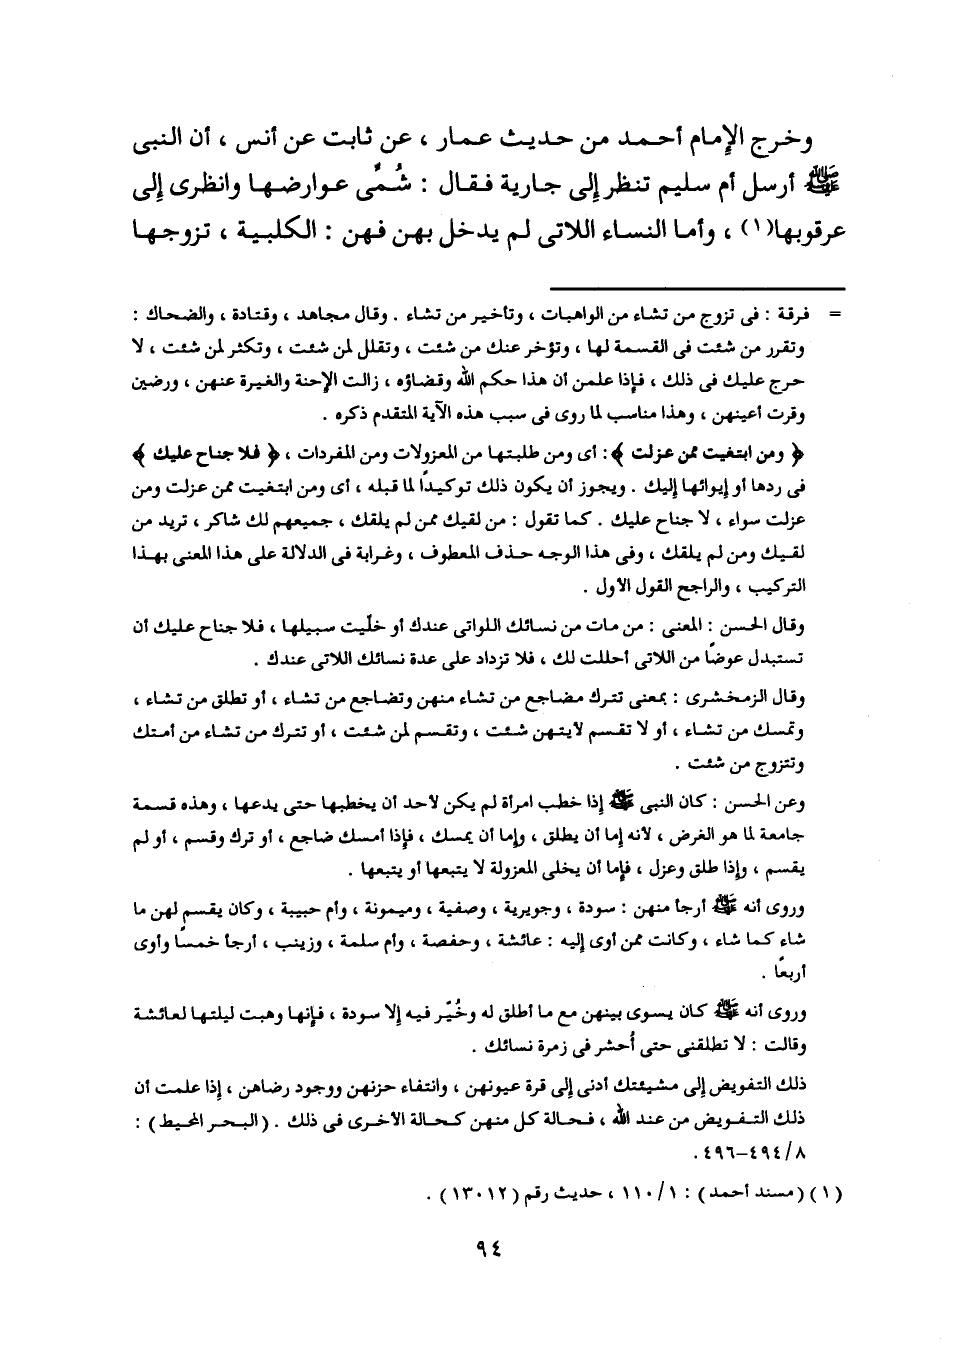 وخرج الإمام أحمد من حديث عمار ، عن ثابت عن أنس ، أن النبى
ﷺ أرسل أم سليم تنظر إلى جارية فقال : شُمِّى عوارضها وانظرى إلى
عرقوبها(١) ، وأما النساء اللاتى لم يدخل بهن فهن : الكلبية ، تزوجها
= فرقة : فى تزوج من تشاء من الواهبات ، وتأخير من تشاء . وقال مجاهد ، وقتادة ، والضحاك :
وتقرر من شئت فى القسمة لها ، وتؤخر عنك من شئت ، وتقلل لمن شئت ، وتكثر لمن شئت ، لا
حرج عليك فى ذلك ، فإذا علمن أن هذا حكم الله وقضاؤه ، زالت الإحنة والغيرة عنهن ، ورضين
وقرت أعينهن ، وهذا مناسب لما روى فى سبب هذه الآية المتقدم ذكره .
﴿ ومن ابتغيت ممن عزلت ﴾ : أى ومن طلبتها من المعزولات ومن المفردات ، ﴿ فلا جناح عليك ﴾
فى ردها أو إيوائها إليك . ويجوز أن يكون ذلك توكيدًا لما قبله ، أى ومن ابتغيت ممن عزلت ومن
عزلت سواء ، لا جناح عليك . كما تقول : من لقيك ممن لم يلقك ، جميعهم لك شاكر ، تريد من
لقيك ومن لم يلقك ، وفى هذا الوجه حذف المعطوف ، وغرابة فى الدلالة على هذا المعنى بهذا
التركيب ، والراجح القول الأول .
وقال الحسن : المعنى : من مات من نسائك اللواتى عندك أو خلّيت سبيلها ، فلا جناح عليك أن
تستبدل عوضًا من اللاتى أحللت لك ، فلا تزداد على عدة نسائك اللاتى عندك .
وقال الزمخشرى : بمعنى تترك مضاجع من تشاء منهن وتضاجع من تشاء ، أو تطلق من تشاء ،
وتمسك من تشاء ، أو لا تقسم لأيتهن شئت ، وتقسم لمن شئت ، أو تترك من تشاء من أمتك
وتتزوج من شئت .
وعن الحسن : كان النبى ﷺ إذا خطب امرأة لم يكن لأحد أن يخطبها حتى يدعها ، وهذه قسمة
جامعة لما هو الغرض ، لأنه إما أن يطلق ، وإما أن يمسك ، فإذا أمسك ضاجع ، أو ترك وقسم ، أو لم
يقسم ، وإذا طلق وعزل ، فإما أن يخلى المعزولة لا يتبعها أو يتبعها .
وروى أنه ﷺ أرجأ منهن : سودة ، وجويرية ، وصفية ، وميمونة ، وأم حبيبة ، وكان يقسم لهن ما
شاء كما شاء ، وكانت ممن أوى إليه : عائشة ، وحفصة ، وأم سلمة ، وزينب ، أرجأ خمسًا وأوى
أربعًا .
وروى أنه ﷺ كان يسوى بينهن مع ما أطلق له وخُيّر فيه إلا سودة ، فإنها وهبت ليلتها لعائشة
وقالت : لا تطلقنى حتى أُحشر فى زمرة نسائك .
ذلك التفويض إلى مشيئتك أدنى إلى قرة عيونهن ، وانتفاء حزنهن ووجود رضاهن ، إذا علمت أن
ذلك التفويض من عند الله ، فحالة كل منهن كحالة الأخرى فى ذلك . (البحر المحيط) :
٨/٤٩٤-٤٩٦ .
(١) (مسند أحمد) : ١١٠/١ ، حديث رقم (١٣٠١٢) .
٩٤